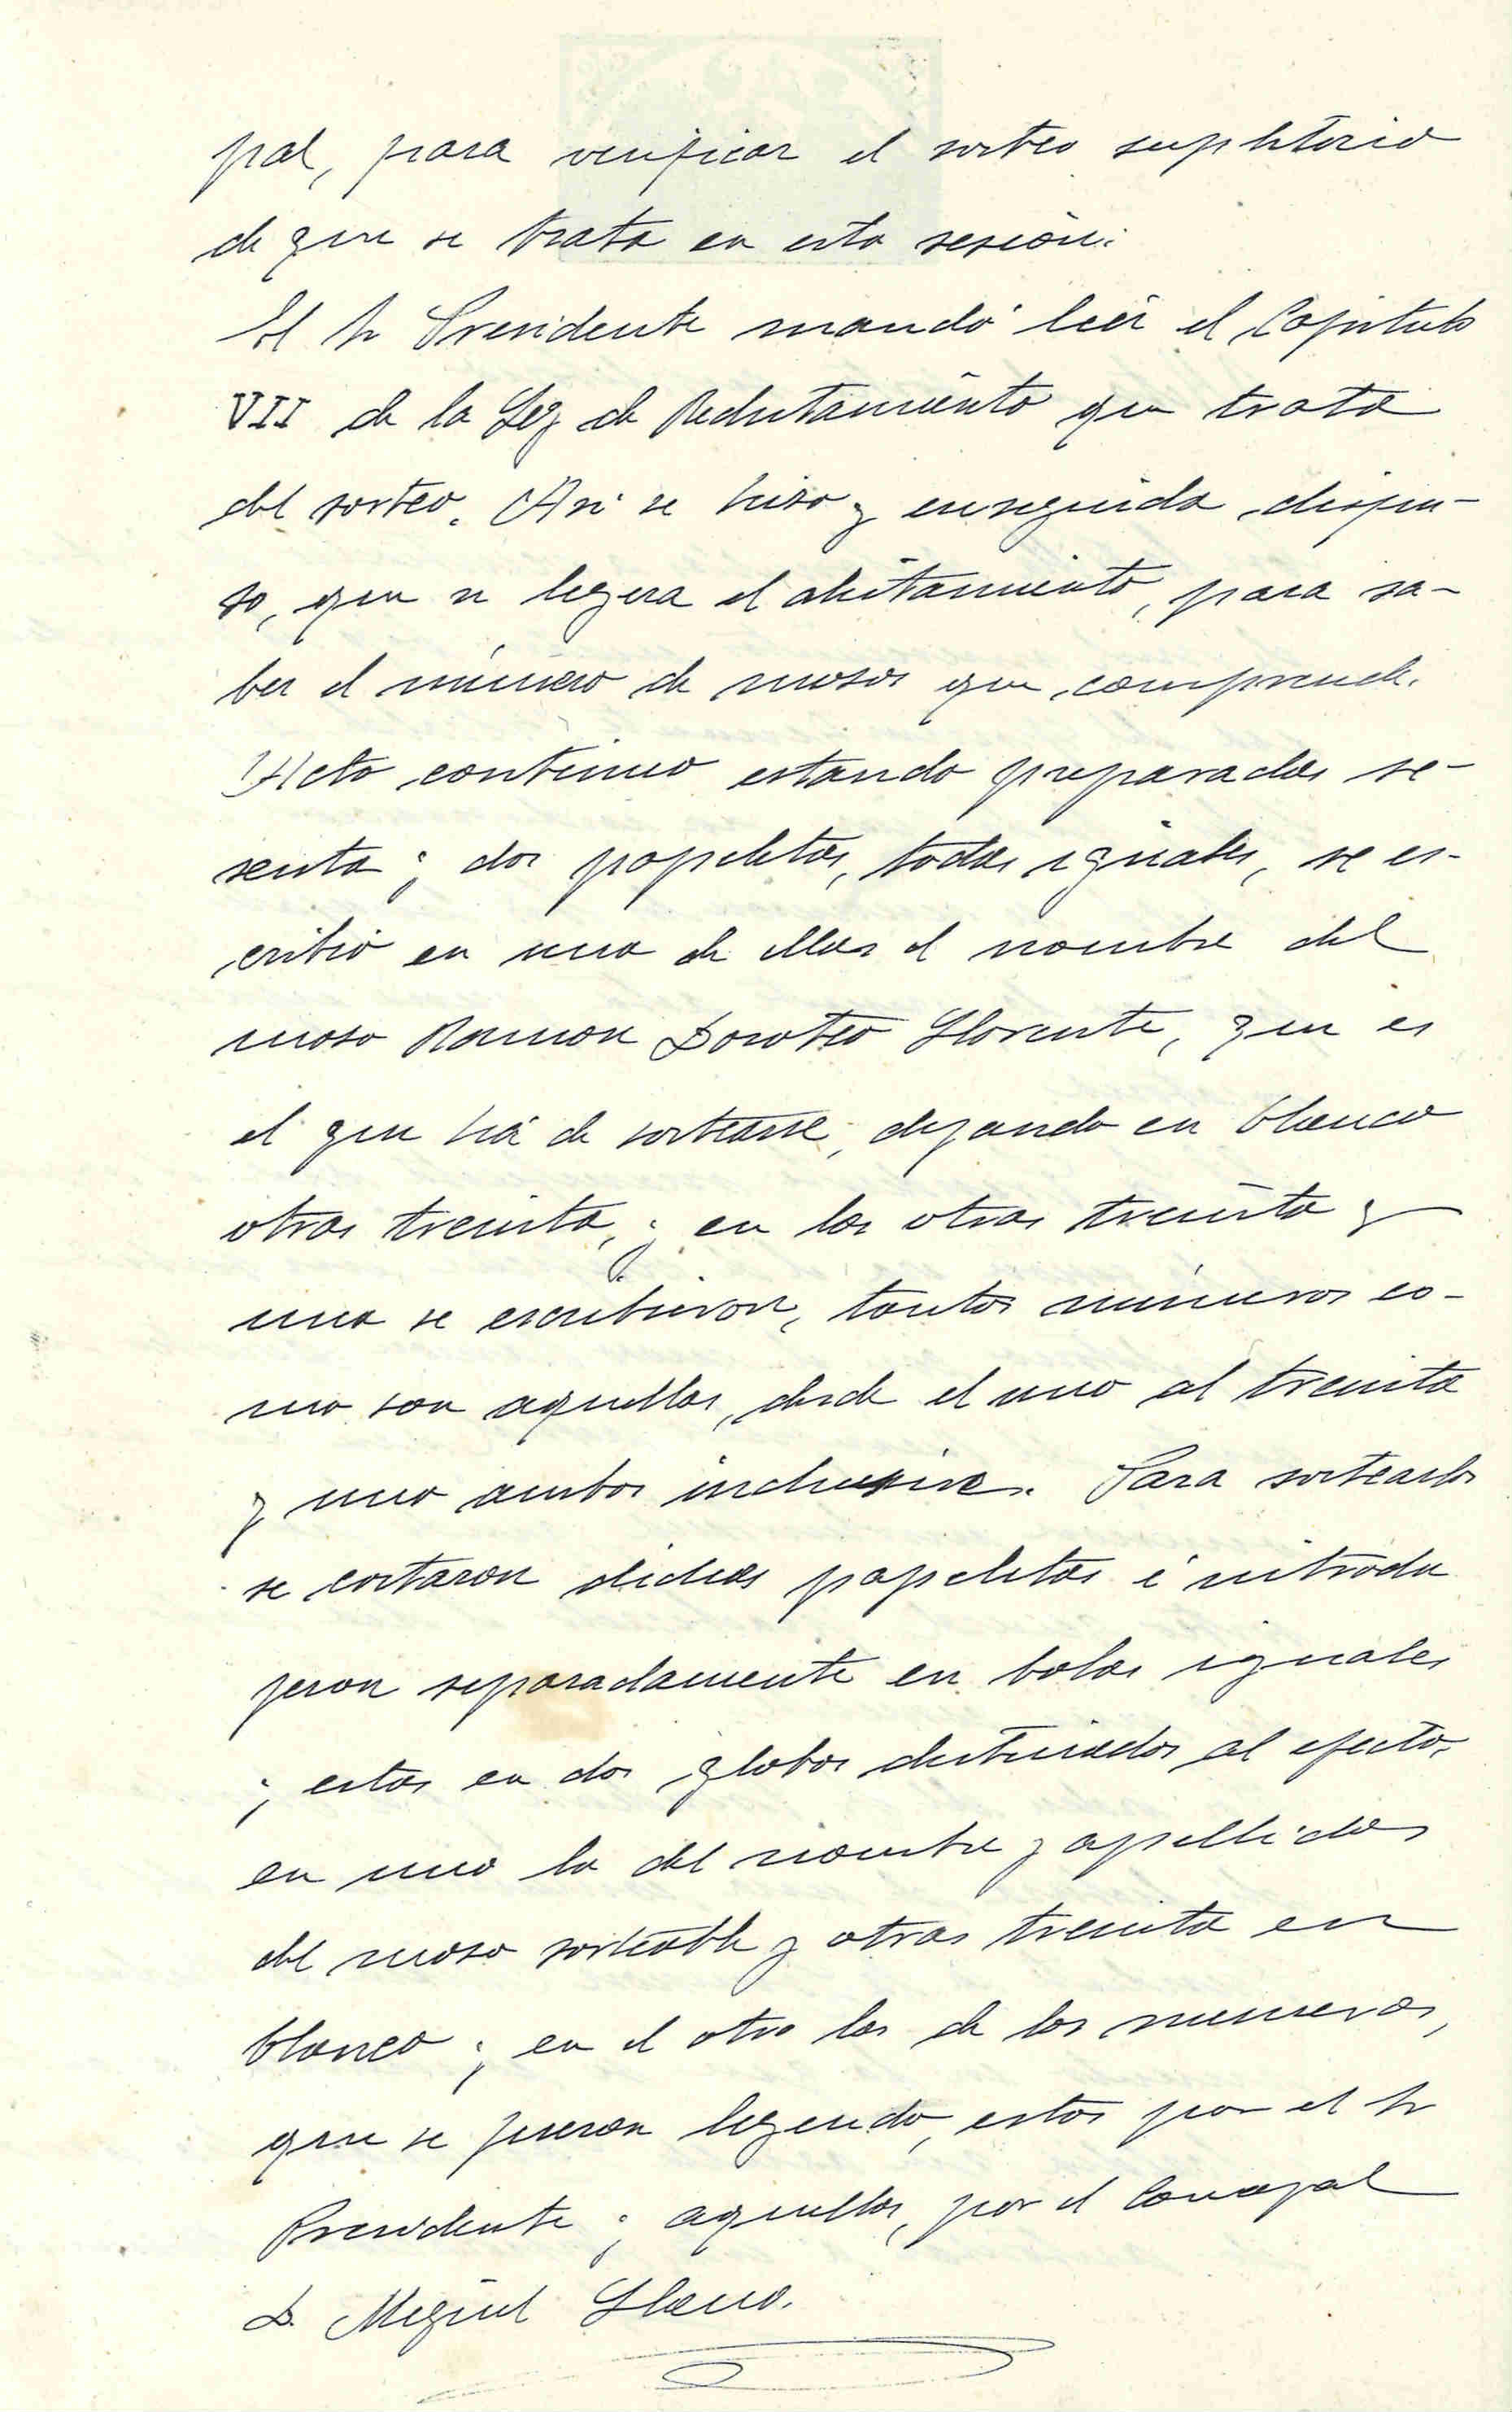 pal, para verificar el sorteo supletorio
de que se trata en esta sesión.
El Sr Presidente mandó leer el Capitulo
VII de la Ley de Reclutamiento que trata
del sorteo. Asi se hizo y enseguida dispu-
so, que se leyera el alistamiento, para sa-
ber el número de mosos que comprende.
Acto continuo estando preparadas se-
senta y dos papeletas, todas iguales, se es-
cribió en una de ellas el nombre del
moso Ramon Doroteo Llorente, que es
el que há de sortearse, dejando en blanco
otras treinta, y en las otras treinta y
una se escribieron, tantos números co-
mo son aquellas, desde el uno al treinta
y uno ambos inclusive. Para sortearlos
se cortaron dichas papeletas é introdu
jeron separadamente en bolas iguales
y estas en dos globos destinados al efecto,
en uno la del nombre y apellidos
del moso sorteable y otras treinta en
blanco y en el otro las de los numeros,
que se fueron leyendo, estos por el Sr
Presidente y aquellas, por el Concejal
D. Miguel Llano.